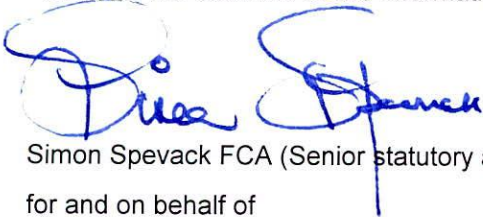 Simon Spevack
Simon Spevack FCA (Senior statutory a
for and on behalf of